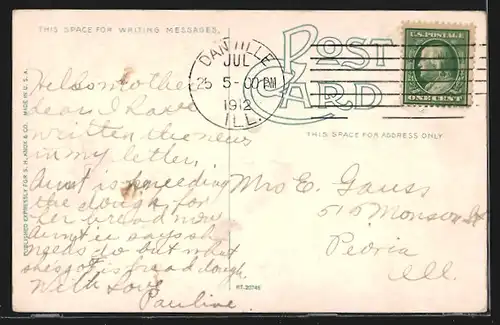 THIS SPACE FOR WRITING MESSAGES.
POST CARD
DANVILLE
JUL
25 5-00 PM
1912
ILL.
U.S. POSTAGE
ONE CENT
THIS SPACE FOR ADDRESS ONLY
PUBLISHED EXPRESSLY FOR S. H. KNOX & CO. MADE IN U.S.A.
Hello mother
dear I have
written the news
in my letter,
Aunt is kneeding
the dough for
her bread now
Aunt says she
needs to but what
she's got is bread dough.
With Love
Pauline
Mrs E. Gauss
515 Monson St
Peoria
Ill.